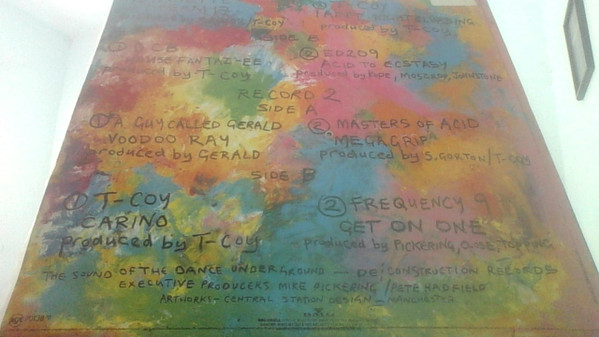 T-COY
NIGHTCLUBBING
T-COY produced by T-Coy
SIDE B
① CB ② ED209
HOUSE FANTAZ-EE ACID TO ECSTASY
produced by T-COY produced by ROPE, MOSCROP, JOHNSTONE
RECORD 2
SIDE A
① A GUY CALLED GERALD ② MASTERS OF ACID
VOODOO RAY MEGAGRIPA
produced by GERALD produced by S.GORTON/T-COY
SIDE B
① T-COY ② FREQUENCY 9
CARINO GET ON ONE
produced by T-COY produced by PICKERING, TOPPING
THE SOUND OF THE DANCE UNDERGROUND — DE/CONSTRUCTION RECORDS
EXECUTIVE PRODUCERS MIKE PICKERING / PETE HADFIELD
ARTWORKS - CENTRAL STATION DESIGN - MANCHESTER